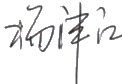 杨津江